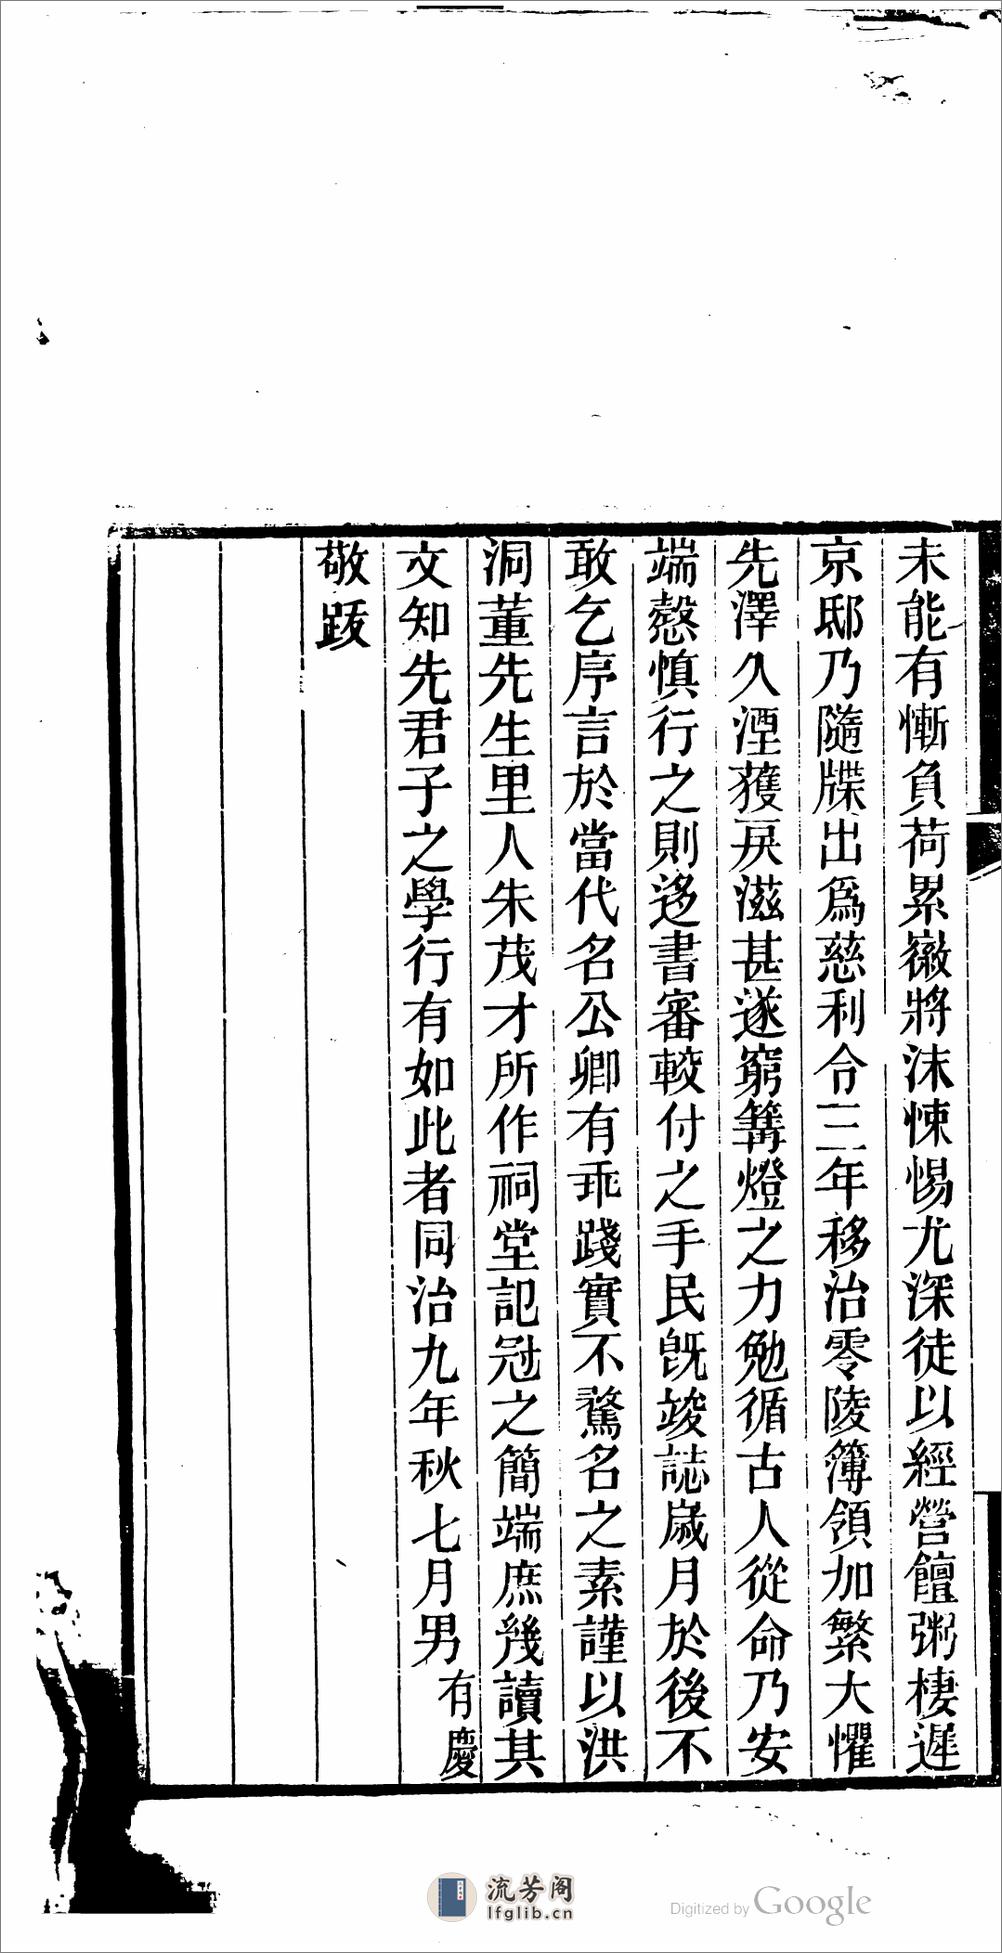 未能有慚負荷累嶶將沫悚惕尤深徒以經營饘粥棲遲
京邸乃隨牒出爲慈利令三年移治零陵簿領加繁大懼
先澤久湮獲戾滋甚遂窮篝燈之力勉循古人從命乃安
端慤慎行之則迻書審較付之手民旣竣誌嵗月於後不
敢乞序言於當代名公卿有乖踐實不騖名之素謹以洪
洞董先生里人朱茂才所作祠堂記冠之簡端庶幾讀其
文知先君子之學行有如此者同治九年秋七月男有慶
敬跋
流芳阁
lfglib.cn
Digitized by Google